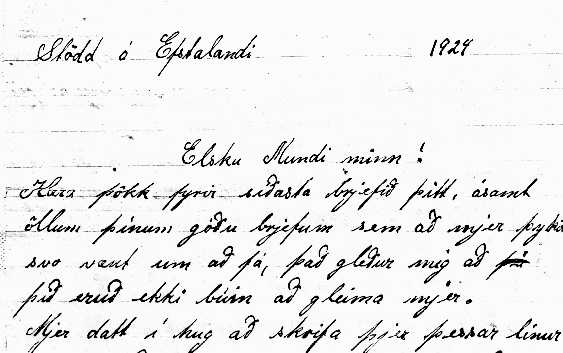 Stödd á Efstalandi 1924
Elsku Mundi minn!
Kæra þökk fyrir síðasta brjefið þitt, ásamt
öllum þínum góðu brjefum sem að mjer þyki
svo vænt um að fá, það gleður mig að
þið eruð ekki búin að gleima mjer.
Mjer datt í hug að skrifa þjer þessar línur